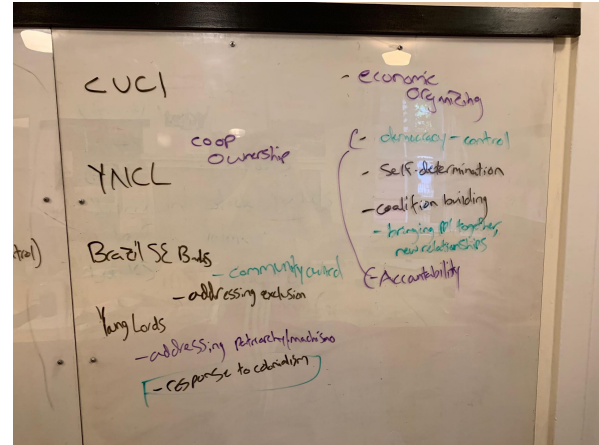 CUCI
coop
ownership
YNCL
Brazil SE Banks
- community control
- addressing exclusion
Young Lords
- addressing patriarchy/machismo
- response to colonialism
- economic
organizing
- democracy - control
- self-determination
- coalition building
- bringing ppl together,
new relationships
- Accountability
trol)